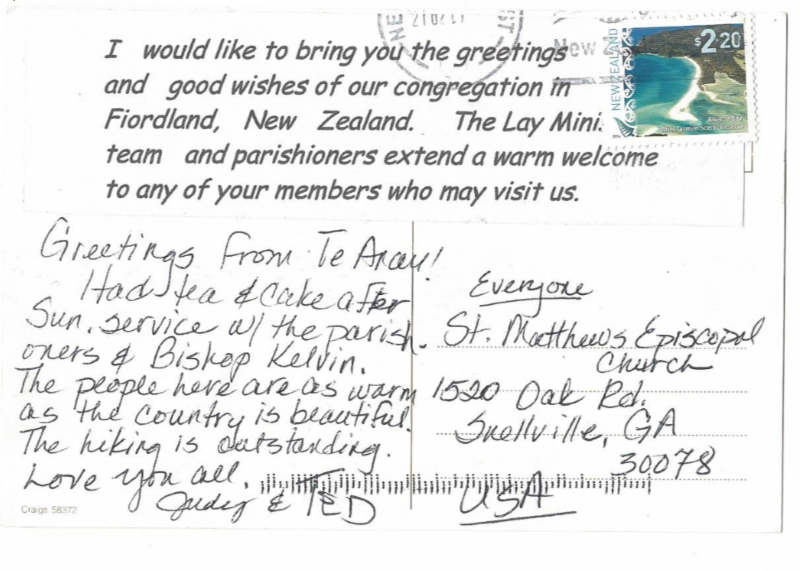 I would like to bring you the greetings
and good wishes of our congregation in
Fiordland, New Zealand. The Lay Minis
team and parishioners extend a warm welcome
to any of your members who may visit us.
New
NEW ZEALAND
$2.20
Greetings From Te Anau!
Had tea & cake after
Sun. service w/ the parish-
oners & Bishop Kelvin.
The people here are as warm
as the country is beautiful.
The hiking is outstanding.
Love you all,
Judy & TED
Craigs 58372
Everyone
St. Matthews Episcopal
Church
1520 Oak Rd.
Snellville, GA
30078
USA